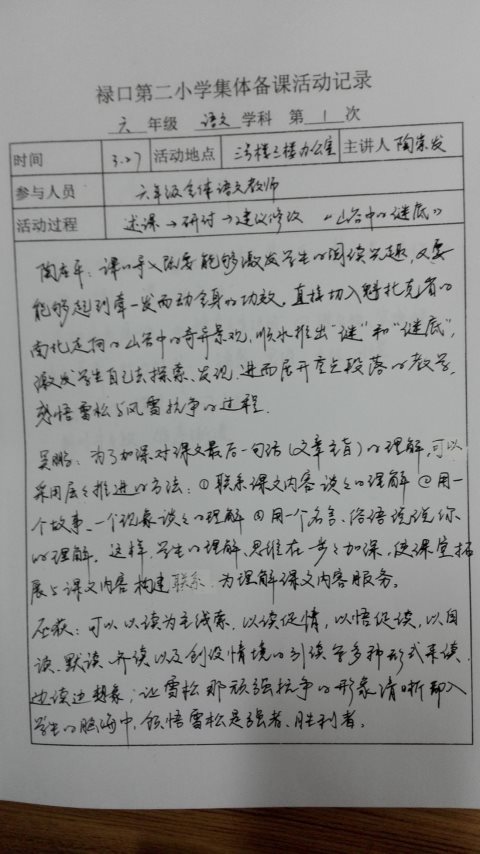 禄口第二小学集体备课活动记录
六 年级 语文 学科 第 1 次
时间 3.27 活动地点 三号楼三楼办公室 主讲人 陶荣发
参与人员 六年级全体语文教师
活动过程 述课→研讨→建议修改 《山谷中的谜底》
陶庄平：课的导入既要能够激发学生的阅读兴趣，又要
能够起到牵一发而动全身的功效，直接切入魁北克省的
南北走向的山谷中的奇异景观，顺水推出“谜”和“谜底”，
激发学生自己去探索、发现，进而展开重点段落的教学，
感悟雪松与风雪抗争的过程。
吴鹏：为了加深对课文最后一句话（文章主旨）的理解，可以
采用层层推进的方法：①联系课文内容谈谈的理解 ②用一
个故事、一个现象谈谈的理解 ③用一个名言、俗语说说你
的理解。这样，学生的理解、思维在一步步加深，使课堂拓
展与课文内容构建联系，为理解课文内容服务。
：可以以读为主线索，以读促情，以悟促读，以自
读、默读、齐读以及创设情境的引读等多种形式来读，
边读边想象；让雪松那顽强抗争的形象清晰印入
学生的脑海中，领悟雪松是强者、胜利者。